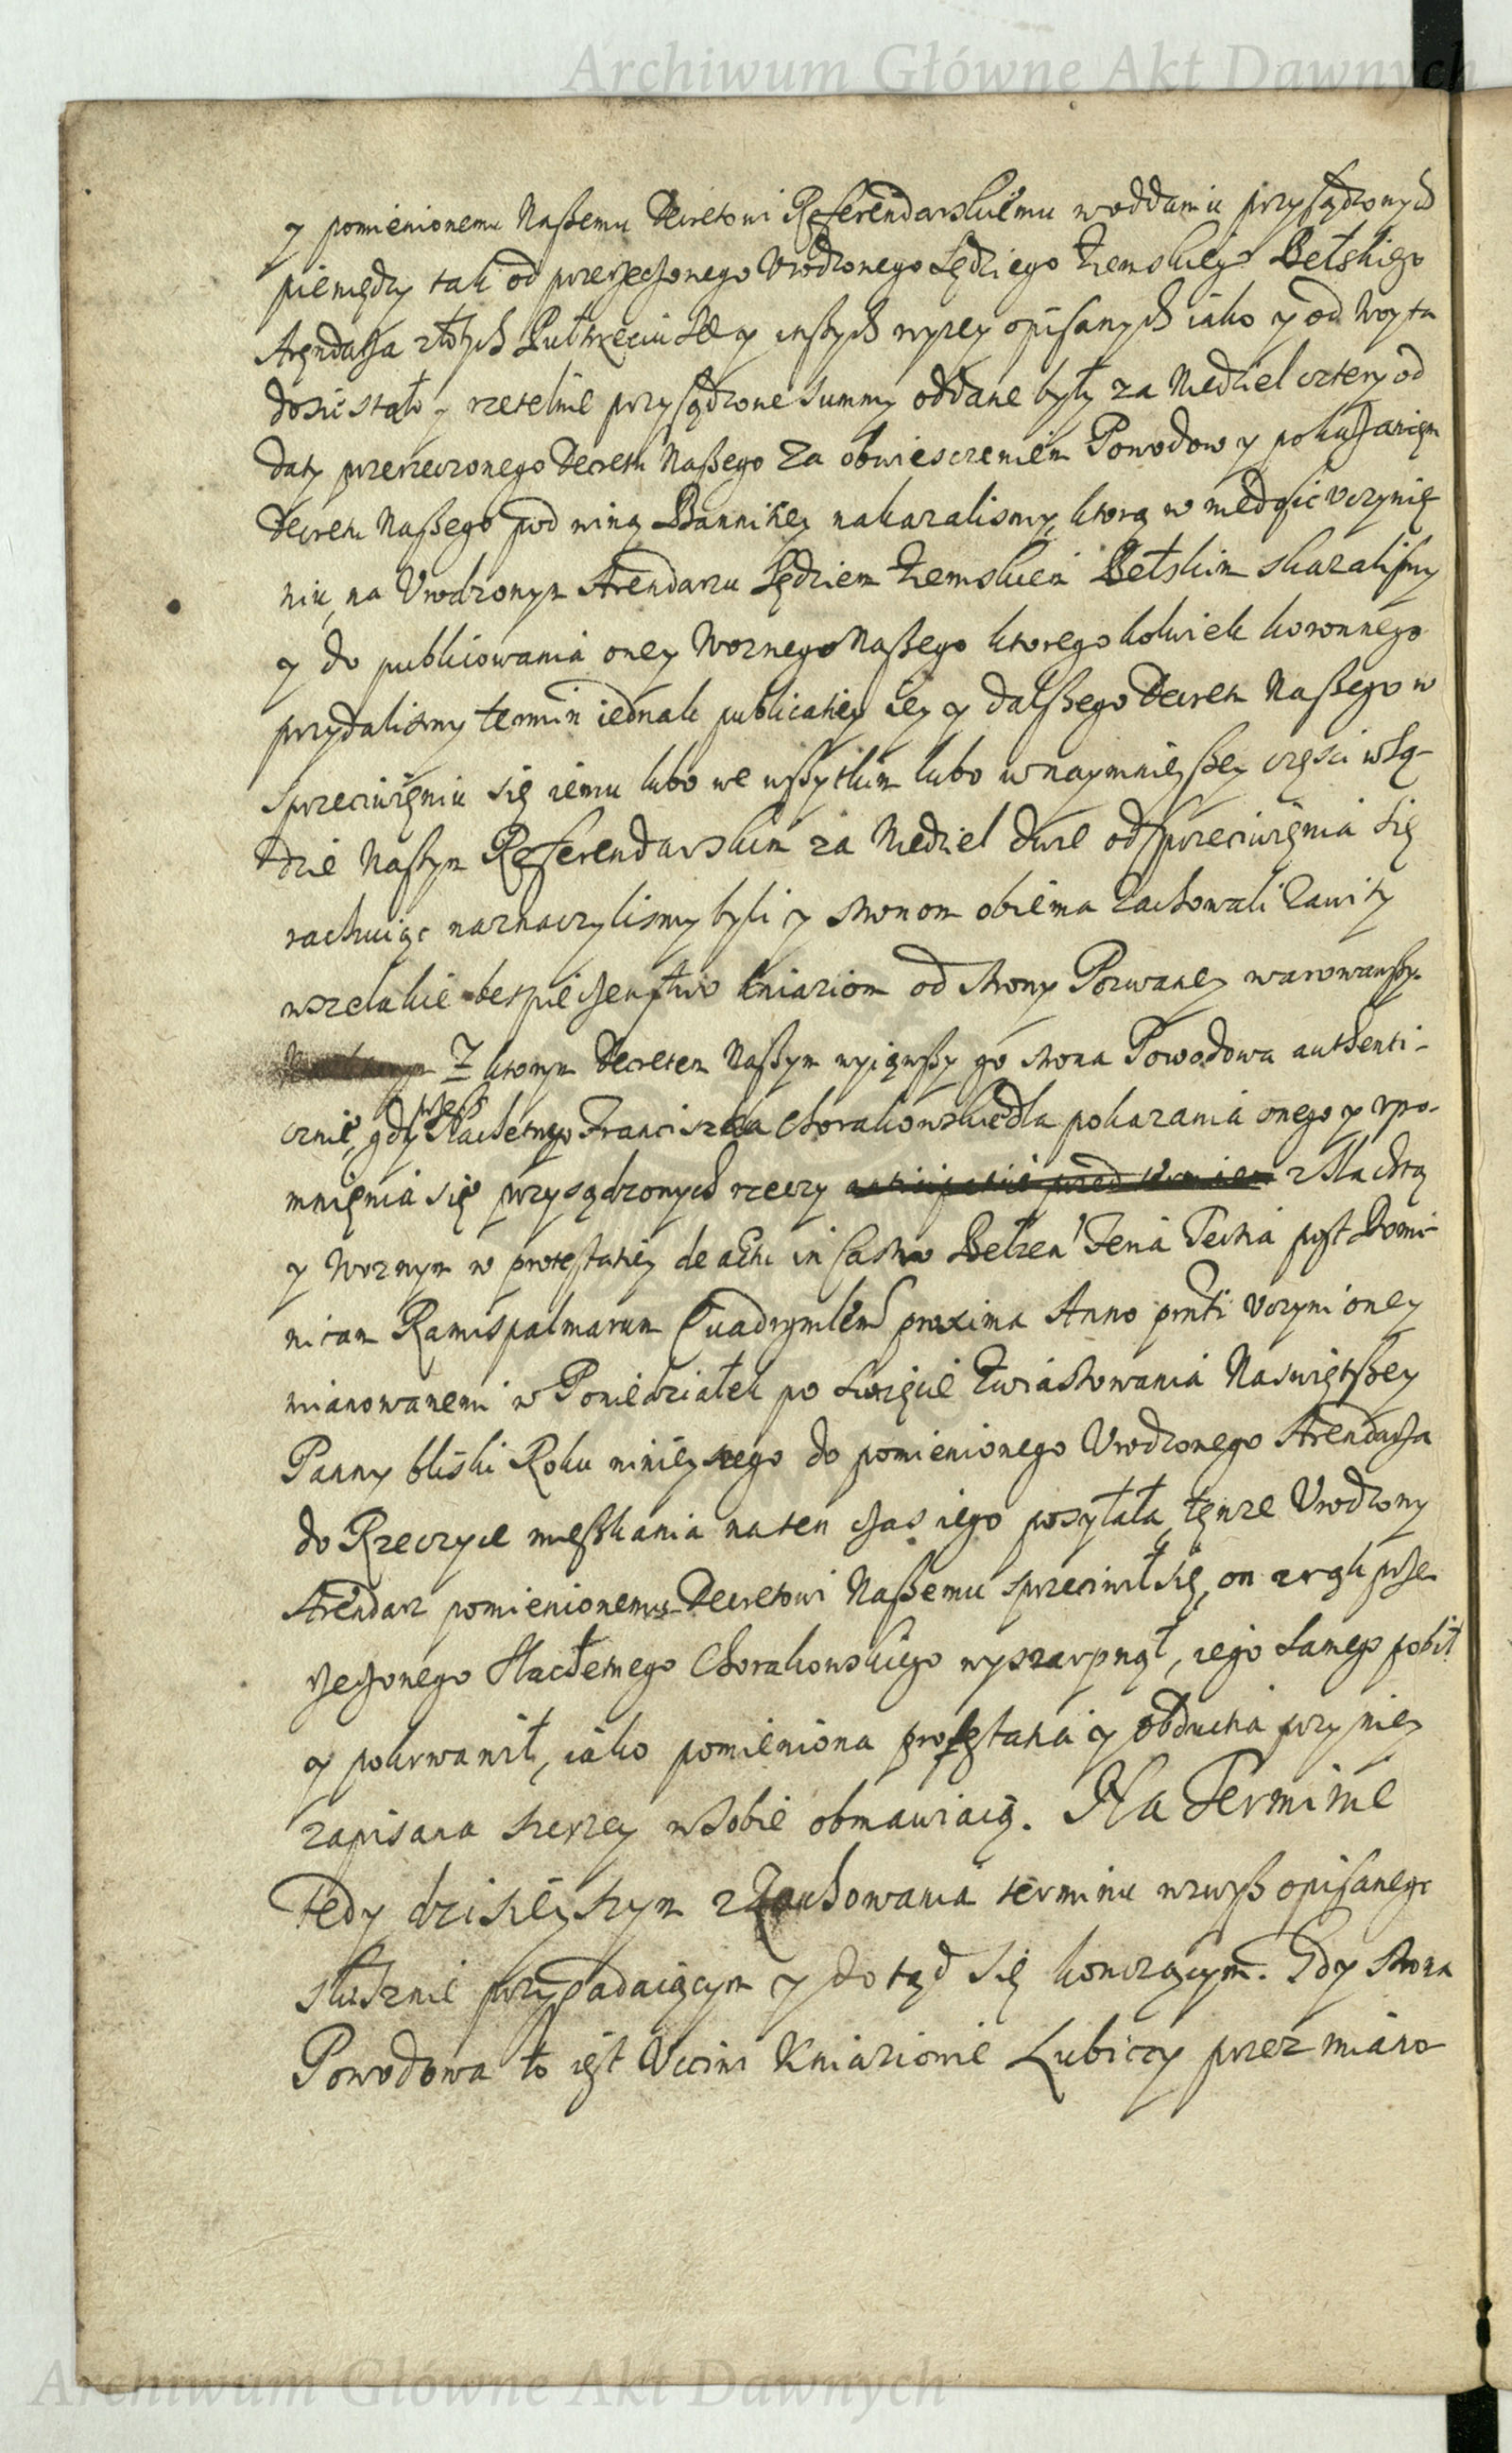 Archiwum Główne Akt Dawnych
y pomienionemu Naszemu Decretowi Referendarskiemu w oddaniu przysądzonych
pieniędzy tak od przerzeczonego Urodzonego Sędziego Ziemskiego Bełskiego
Arendarza złotych Pułtrzeciu Set y inszych wyzey opisanych iako y od Woyta
dosić stało y rzetelnie przysądzone summy oddane były za Niedziel cztery od
daty przerzeczonego Decretu Naszego za obwiesczeniem Powodow y pokazaniem
Decretu Naszego pod winą Bannitiey nakazalismy, ktorą w niedosic uczynie
niu, na Urodzonym Arendarzu Sędziem Ziemskiem Bełskim skazalismy
y do publicowania oney Woznego Naszego ktoregokolwiek koronnego
przydalismy termin iednak publicatiey iey y dalszego Decretu Naszego w
sprzeciwięniu się iemu lubo we wszytkim lubo w naymnieyszey części w Są-
dzie Naszym Referendarskim za Niedziel dwie od sprzeciwięnia się
rachuiąc naznaczylismy byli y stronom obiema zachowali zawity
wszelakie bespieczenstwo kniaziom od strony Pozwaney warowawszy.
Z ktorym Decretem Naszym wyiąwszy go strona Powodowa authenti-
cznie, gdy przez Slachetnego Franciszka Chorakowskie dla pokazania onego y upo-
mnięnia się przysądzonych rzeczy z Slachtą
y Woznym w protestatiey de actu in Castro Belzen Feria Tertia post Domi-
nicam Ramispalmarum Quadragmlem proxima Anno pnti uczynioney
mianowanemi w Poniedziałek po Swięcie Zwiastowania Naswiętszey
Panny bliski Roku ninieyszego do pomienionego Urodzonego Arendarza
do Rzeczyce mieszkania na ten czas iego posyłała, tęnze Urodzony
Arendarz pomienionemu Decretowi Naszemu sprzeciwił się, on z rąk prze
rzeczonego Slachetnego Chorakowskiego wyszarpnął, iego samego pobił
y pokrwawił, iako pomieniona protestatia y obductia przy niey
zapisana szerzey w sobie obmawiaią. Na Terminie
tedy dzisieyszym z Zachowania terminu wzwysz opisanego
słusznie przypadaiącym y dotąd się konczącym. Gdy strona
Powodowa to iest Uczciwi Kniaziowie Lubiczy przez miano
Archiwum Główne Akt Dawnych